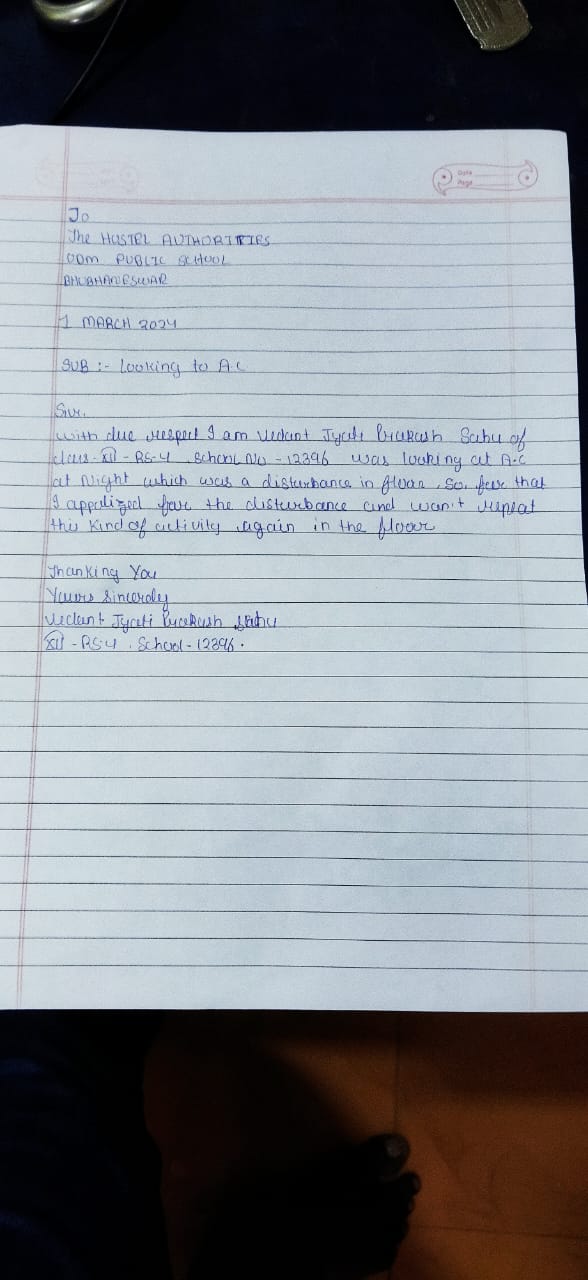 Date
Page
To
The HOSTEL AUTHORITIES
ODM PUBLIC SCHOOL
BHUBHANESWAR
1 MARCH 2024
SUB :- Looking to A.C
Sir,
With due respect I am Vedant Jyoti Prakash Sahu of
class - XII - RS-4 School No - 12396 was looking at A.C
at Night which was a disturbance in floor. So, for that
I appolized for the disturbance and won't repeat
this kind of activity again in the floor
Thanking You
Yours Sincerely
Vedant Jyoti Prakash Sahu
XII - RS-4 . School - 12396 .